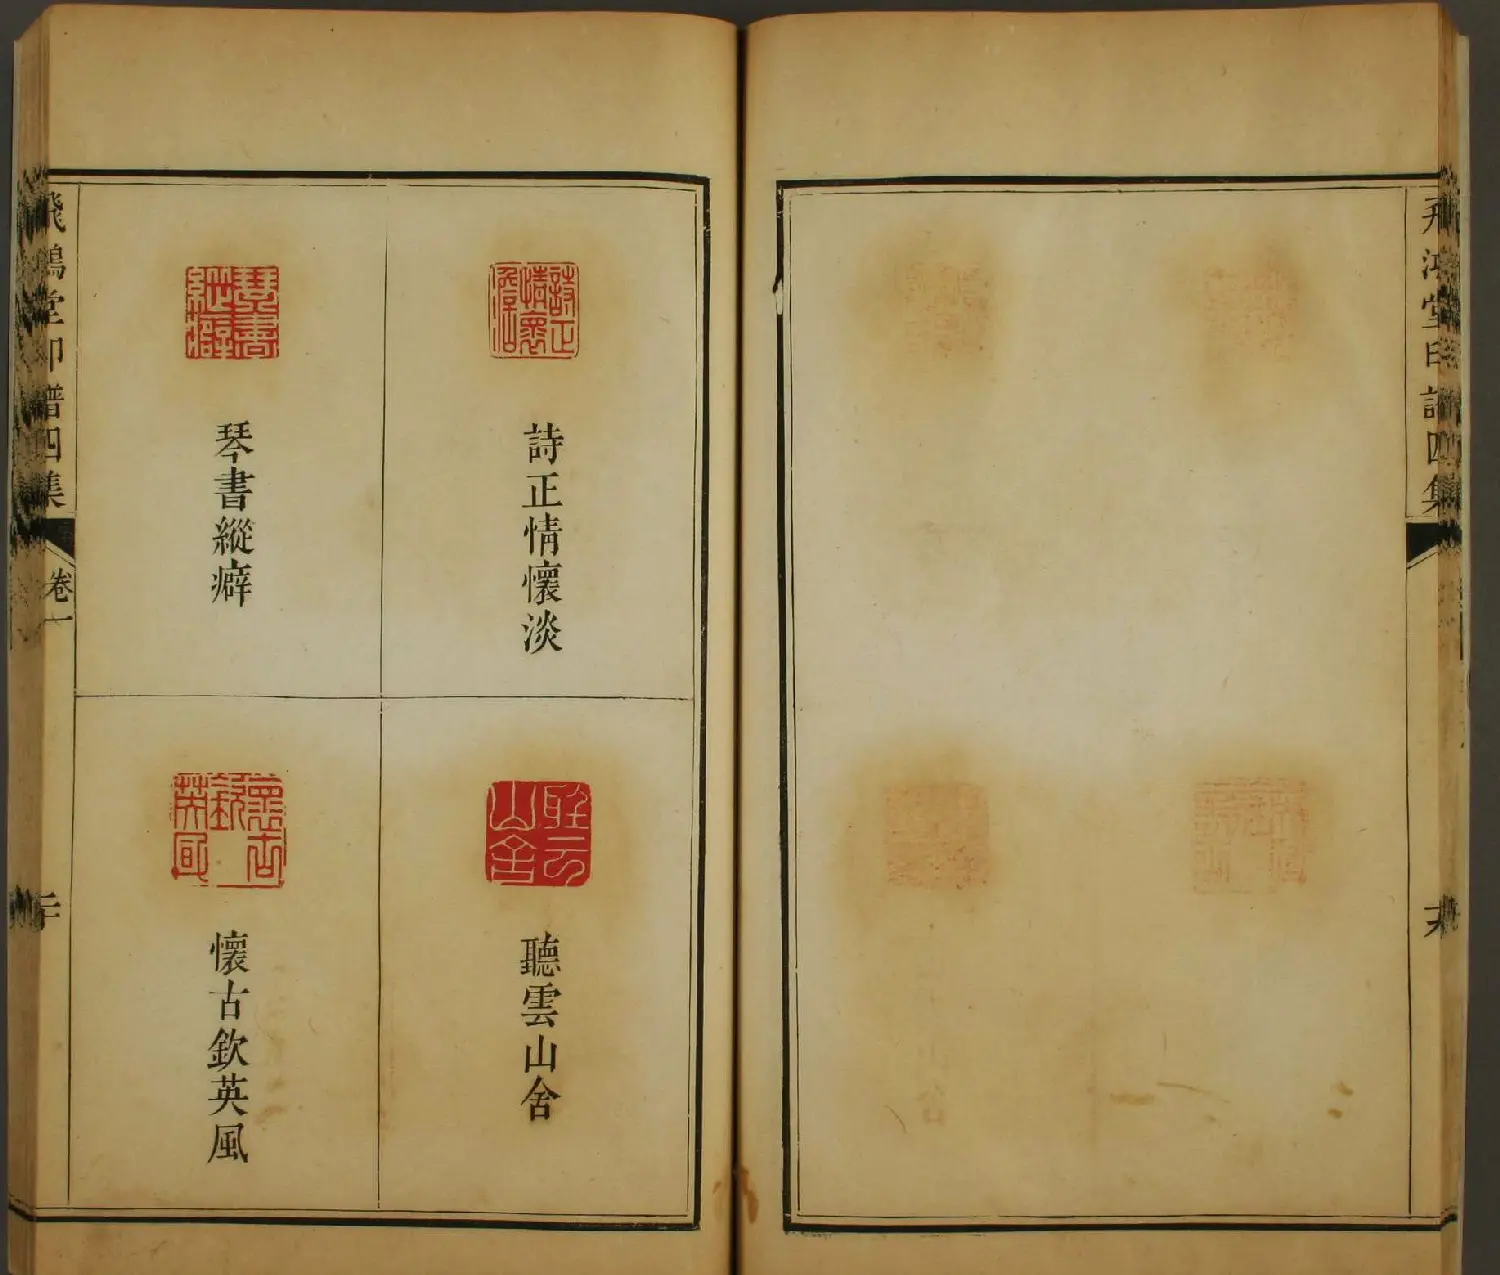 飛鴻堂印譜四集
詩正情懷淡
聽雲山舍
琴書縱癖
懷古欽英風
飛鴻堂印譜四集
卷一
二十